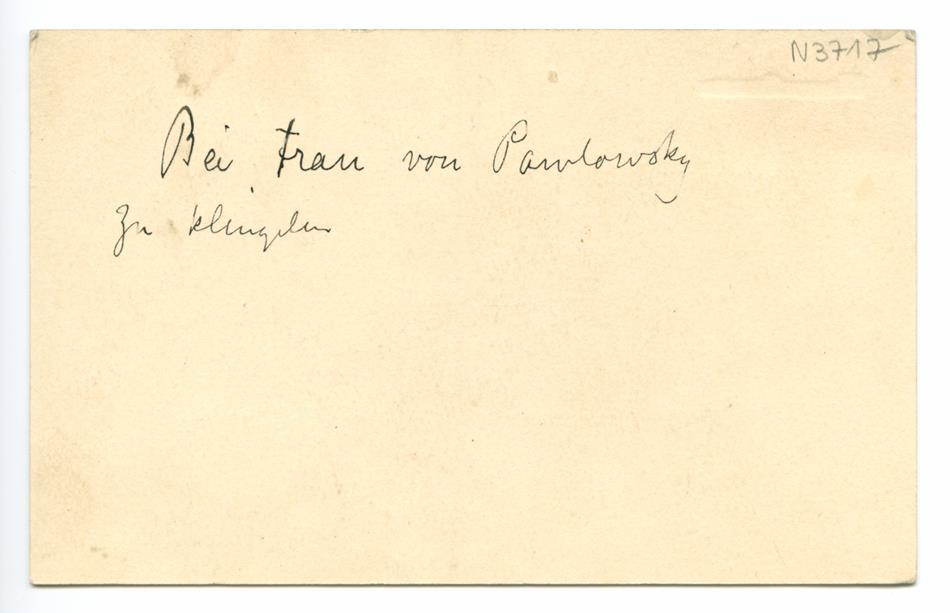 N3717
Bei Frau von Pawlowsky
zu klingeln